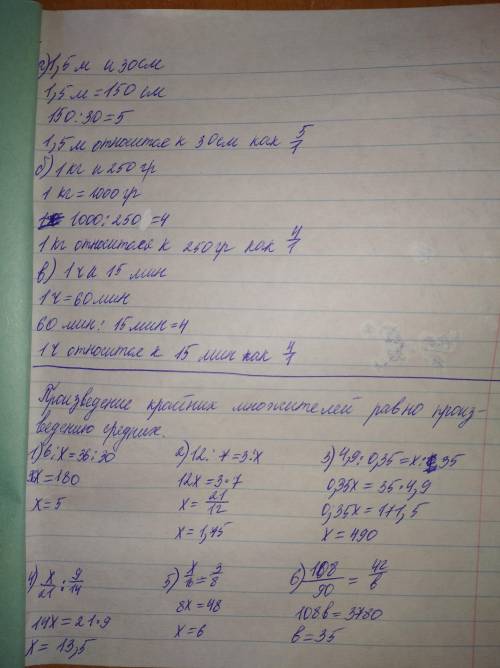 а) 1,5 м и 30 см
1,5 м = 150 см
150 : 30 = 5
1,5 м относится к 30 см как 5/1
б) 1 кг и 250 гр
1 кг = 1000 гр
1000 : 250 = 4
1 кг относится к 250 гр как 4/1
в) 1 ч и 15 мин
1 ч = 60 мин
60 мин : 15 мин = 4
1 ч относится к 15 мин как 4/1
Произведение крайних множителей равно произ-
ведению средних.
1) 6 : x = 36 : 30
36x = 180
x = 5
2) 12 : 7 = 3 : x
12x = 3 · 7
x = 21/12
x = 1,75
3) 4,9 : 0,35 = x : 35
0,35x = 35 · 4,9
0,35x = 171,5
x = 490
4) x/21 : 9/14
14x = 21 · 9
x = 13,5
5) x/16 = 3/8
8x = 48
x = 6
6) 108/90 = 42/b
108b = 3780
b = 35